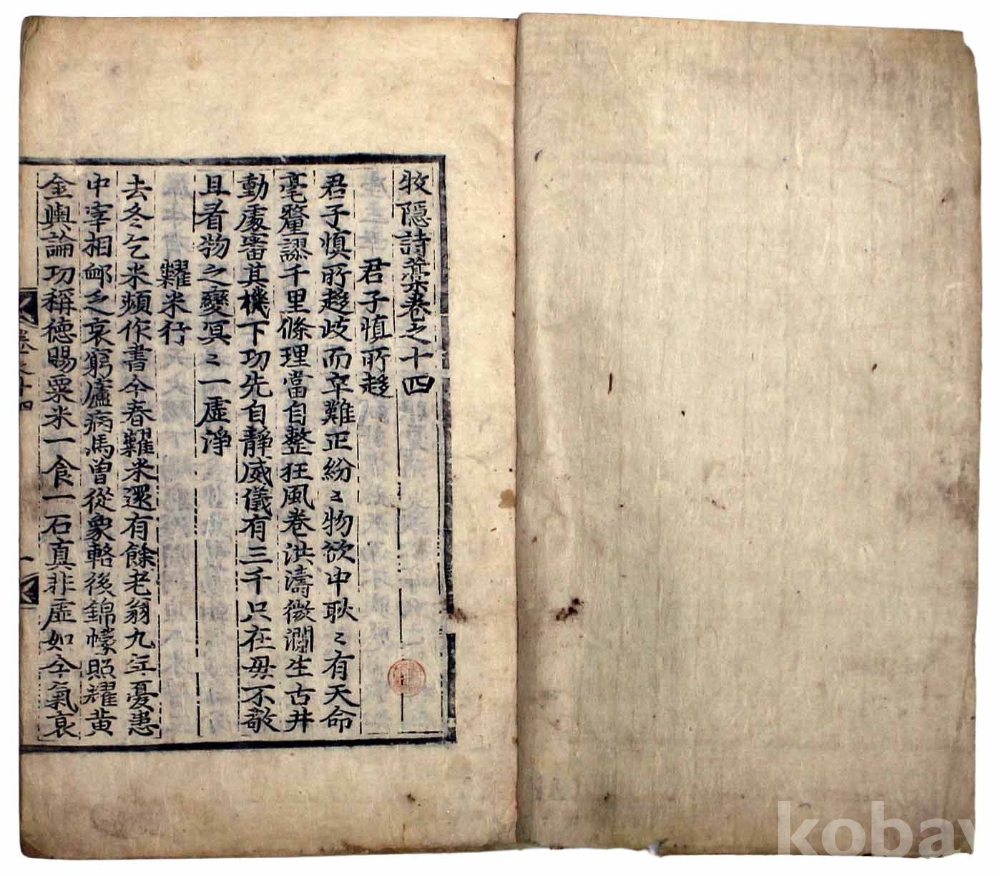 牧隱詩藁卷之十四
君子愼所趍
君子愼所趍歧而卒難正紛〻物欲中耿〻有天命
毫釐謬千里條理當自整狂風卷洪濤微瀾生古井
動處審其機下功先自靜威儀有三千只在毋不敬
且看物之變冥〻一虛淨
糶米行
去冬乞米頻作書今春糶米還有餘老翁九年憂患
中宰相邮之哀窮廬病馬曾從象輅後錦幪照耀黃
金輿論功稱德賜粟米一食一石真非虛如今氣衰
卷之十四
一
kobay